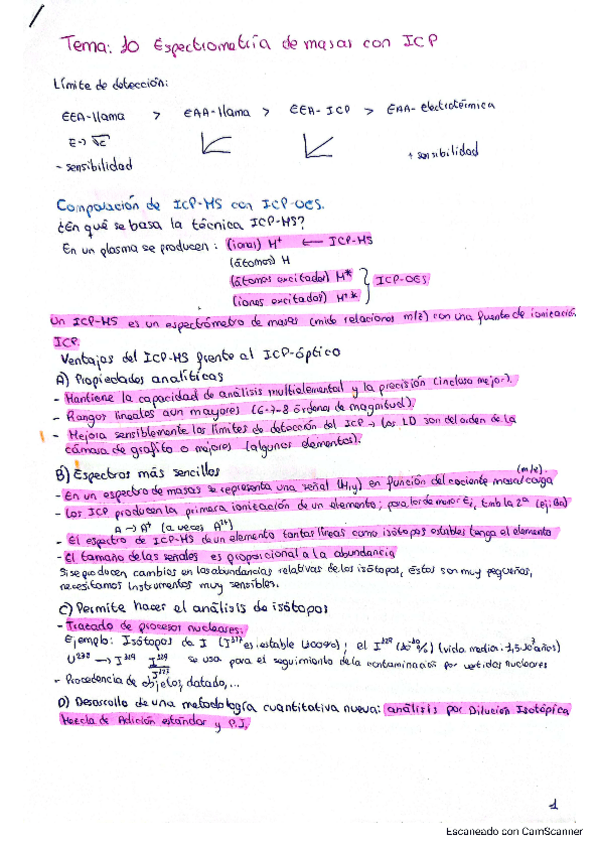 Tema: 10 Espectrometría de masas con ICP
Límite de detección:
EEA-llama > EAA-llama > EEA-ICP > EAA-electrotérmica
- sensibilidad + sensibilidad
Comparación de ICP-MS con ICP-OES.
¿En qué se basa la técnica ICP-MS?
En un plasma se producen: (iones) M⁺ ← ICP-MS
(átomos) M
(átomos excitados) M*
(iones excitados) M⁺* } ICP-OES
Un ICP-MS es un espectrómetro de masas (mide relaciones m/z) con una fuente de ionización
ICP.
Ventajas del ICP-MS frente al ICP-óptico
A) Propiedades analíticas
- Mantiene la capacidad de análisis multielemental y la precisión (incluso mejor).
- Rangos lineales aun mayores (6-7-8 órdenes de magnitud).
- Mejora sensiblemente los límites de detección del ICP → los LD son del orden de la
cámara de grafito o mejores (algunos elementos).
B) Espectros más sencillos
- En un espectro de masas se representa una señal en función del cociente masa/carga (m/z).
- Los ICP producen la primera ionización de un elemento; para los de mayor, tmb la 2ª (ej: Ba)
A → A⁺ (a veces A²⁺)
- El espectro de ICP-MS de un elemento tantas líneas como isótopos estables tenga el elemento
- El tamaño de las señales es proporcional a la abundancia
Si se producen cambios en las abundancias relativas de los isótopos, éstos son muy pequeños,
necesitamos instrumentos muy sensibles.
C) Permite hacer el análisis de isótopos
- Trazado de procesos nucleares.
Ejemplo: Isótopos de I (I¹²⁷ es estable ); el I¹²⁹ (vida media: años)
→ I¹²⁹ se usa para el seguimiento de la contaminación por vertidos nucleares
- Procedencia de objetos, datado,...
D) Desarrollo de una metodología cuantitativa nueva: análisis por Dilución Isotópica
Mezcla de Adición estándar y P.I.
1
Escaneado con CamScanner